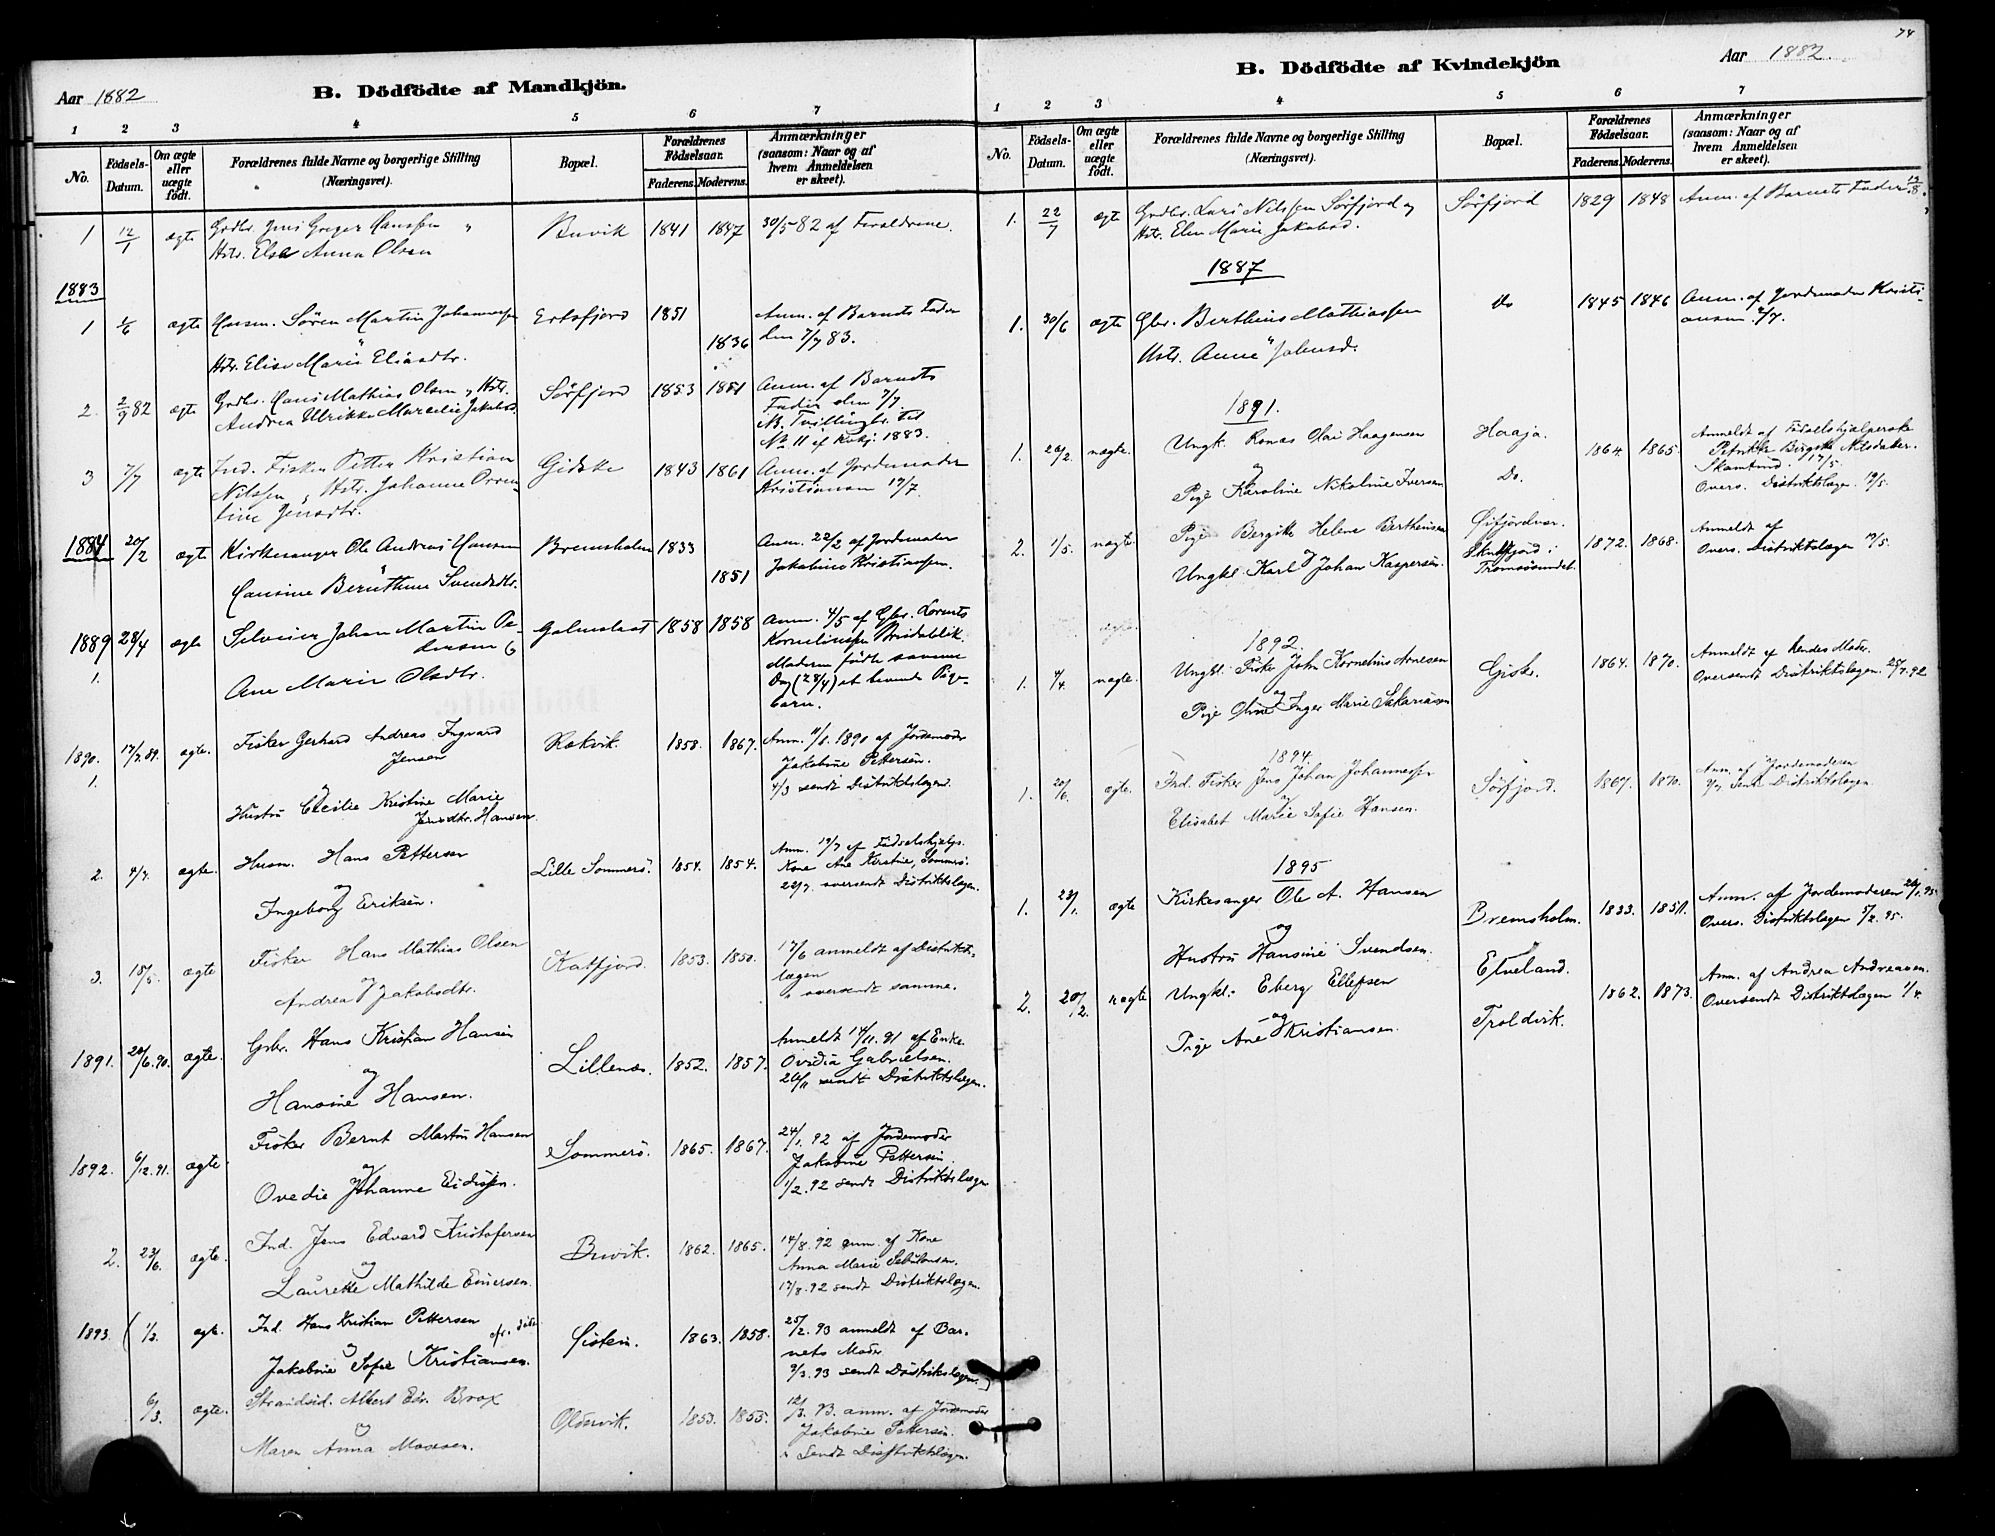 Aar 1882
B. Dödfödte af Mandkjön.
1 2 3 4 5 6 7
No.
Födsels-Datum.
Om ægte eller uægte födt.
Forældrenes fulde Navne og borgerlige Stilling
(Næringsvei).
Bopæl.
Forældrenes Födselsaar.
Faderens. Moderens.
Anmærkninger
(saasom: Naar og af
hvem Anmeldelsen
er skeet).
1 12/1 ægte Grdbr. Jens Greger Hanssen " Buvik 1841 1847 30/5 82 af Forældrene.
Hstr. Else Anna Olsen
1883
1 1/6 ægte Husm. Sören Martin Johannessen Ersfjord 1851 Anm. af Barnets Fader
1836 den 7/7 83.
Hstr. Elise Marie Eliasdtr.
2. 2/9 82 ægte Grdbr. Hans Mathias Olsen, Hstr. Sörfjord 1853 1851 Anm. af Barnets
Andrea Ulrikke Marselie Jakobsd. Fader den 7/7.
NB. Tvillingbr. til
No 11 af Kvkj. 1883.
3 7/7 ægte Ind. Fisker Petter Kristian 1843 1861 Anm. af Jordemoder
Nilssen, Hstr. Johanne Kristiansen 19/7.
tine Jensdtr.
1884 20/2 ægte Kirkesanger Ole Andreas Hansen Bremsholm 1833 Anm. 22/2 af Jordemoder
1851 Jakobine Kristiansen.
Hansine Svendsdtr.
1889 28/4 ægte Johan Martin Pe- 1858 1858 Anm. 4/5 af Gbr. Lorents
dersen Kornelinssen Breidablik.
1. Ane Marie Olsdtr. Moderen födte samme
Dag (28/4) et levende Pige-
barn.
1890. 17/7.89. ægte. Fisker Gerhard Andreas Ingvard Rekvik. 1858. 1867. Anm. 11/1. 1890 af Jordemoder
1. Jensen Jakobine Pettersen.
4/3 sendt Distriktslægen.
Hustru Cecilie Kristine Marie
Jensdtr. Hansen
2. 4/7. ægte. Husm. Hans Pettersen Lille Sommerö. 1854. 1854. Anm. 19/7 af Födselshjælps.
og Kone Ane Kirstine, Sommerö.
Ingeborg Eriksen. 22/7. oversendt Distriktslægen.
3. 15/5. ægte Fisker Hans Mathias Olsen Katfjord. 1853. 1850. 17/6 anmeldt af Distrikts-
og lægen
Andrea Jakobsdtr. " oversendt samme.
1891. 20/6.90. ægte. Gbr. Hans Kristian Hansen Lillenes. 1852. 1857. Anmeldt 14/11.91 af Enke
og Ovidia Gabrielsen.
Hansine Hansen. 26/11 sendt Distriktslægen.
1892. 6/12.91. ægte. Fisker Bernt Martin Hansen Sommerö. 1865. 1867. 24/1. 92 af Jordemoder
og Jakobine Pettersen.
Ovedie Johanne Eidissen. 1/2. 92 sendt Distriktslægen
2. 23/6. ægte. Ind. Jens Edvard Kristofersen Buvik. 1862. 1865. 14/8. 92 anm. af Kone
og Anna Marie
Laurette Mathilde Einersen. 17/8. 92 sendt Distriktslægen.
1893. ( 1/2. ægte. Ind. Hans Kristian Pettersen 1863. 1858. 25/2. 93 anmeldt af Bar-
og nets Moder
Jakobine Sofie Kristiansen. 3/3. 93 sendt Distriktslægen.)
6/3. ægte. Strandsid. Albert Edv. Brox Oldervik. 1853. 1855. 12/3. 93. anm. af Jordemoder
og Jakobine Pettersen.
Maren Anna " Sendt Distriktslægen.
74
B. Dödfödte af Kvindekjön
Aar 1882.
1 2 3 4 5 6 7
No.
Födsels-Datum.
Om ægte eller uægte födt.
Forældrenes fulde Navne og borgerlige Stilling
(Næringsvei).
Bopæl.
Forældrenes Födselsaar.
Faderens. Moderens.
Anmærkninger
(saasom: Naar og af
hvem Anmeldelsen
er skeet).
1. 22/7 ægte Grdbr. Lars Nilssen Sörfjord og Sörfjord 1829 1848 Anm. af Barnets Fader 13/8.
Hstr. Elen Marie Jakobsd.
1887
1. 30/6 ægte Gbr. Berthius Mathiassen Do 1845 1846 Anm. af Jordemoder Kristi-
Hstr. Anne Johnsd. ansen 2/7.
1891.
1. 20/2. uægte. Ungk. Ronas Olai Haagensen Haaja. 1864. 1865. Anmeldt af Födselshjælperske
og Petrikke Birgitte Nilsdatter.
Pige Karoline Nikoline Iversen Do. Skamtind. 17/5.
Overs. Distriktslægen. 19/5.
2. 1/5. uægte. Pige Bergitte Helene Berthinsen Öifjordvær. 1872. 1868. Anmeldt af
Ungkl. Karl Johan Kaspersen. Skulsfjord i Overs. Distriktslægen 19/5.
Tromsösundet.
1892.
1. 4/4. uægte. Ungkl. Fisker John Kornelius Arnesen 1864. 1870. Anmeldt af hendes Moder.
og Oversendt Distriktslægen. 25/7. 92
Pige Inger Marie Sakariasen
1894.
1. 20/6. ægte. Ind. Fisker Jens Johan Johannessen Sörfjord. 1867. 1870. Anm. af Jordemoderen
og 2/7 Sendt Distriktslægen.
Elisabet Marie Sofie Hansen.
1895
1. 23/1. ægte Kirkesanger Ole A. Hansen Bremsholm. 1833. 1851. Anm. af Jordemoderen 26/1.95.
og Overs. Distriktslægen 5/2. 95.
Hustru Hansine Svendsen.
2. 20/2. uægte Ungkl. Eberg Ellefsen Elveland. 1862. 1873. Anm. af Andrea Andreasen.
og Oversendt Distriktslægen 1/4.
Pige Ane Kristiansen. Troldvik.